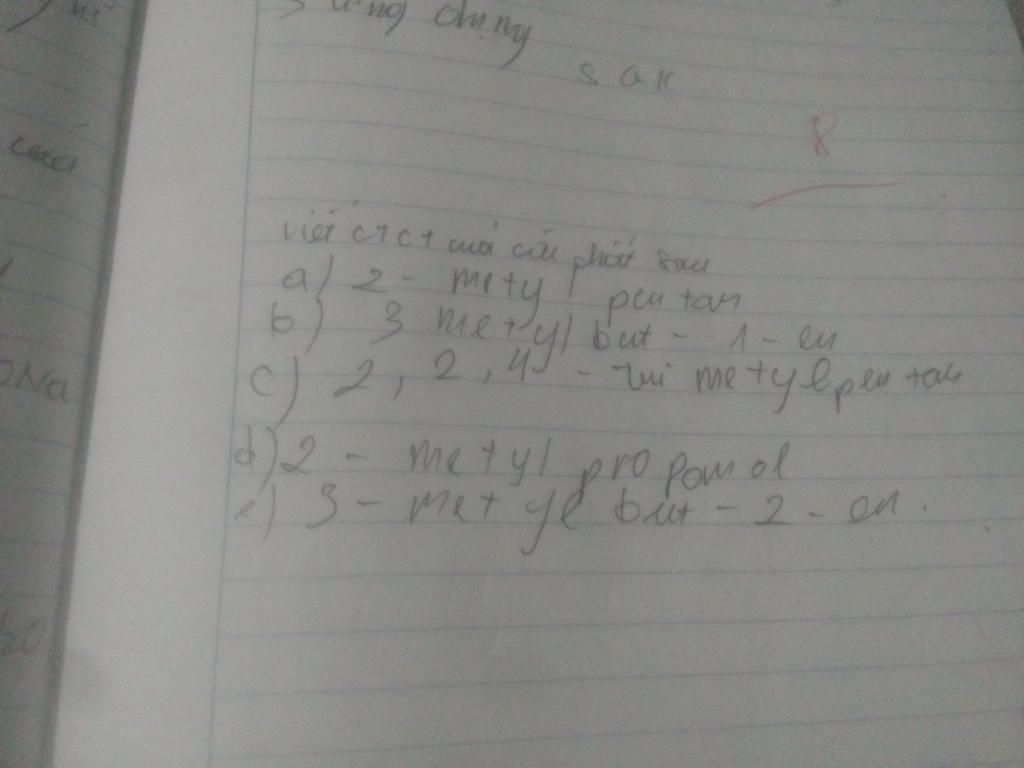 3 ứng dụng
SGK
8
của
viết CTCT của các chất sau
a) 2 - metyl pentan
b) 3 metyl but - 1 - en
c) 2, 2, 4 - tri metyl pentan
d) 2 - metyl propanol
e) 3 - metyl but - 2 - en.
ONa